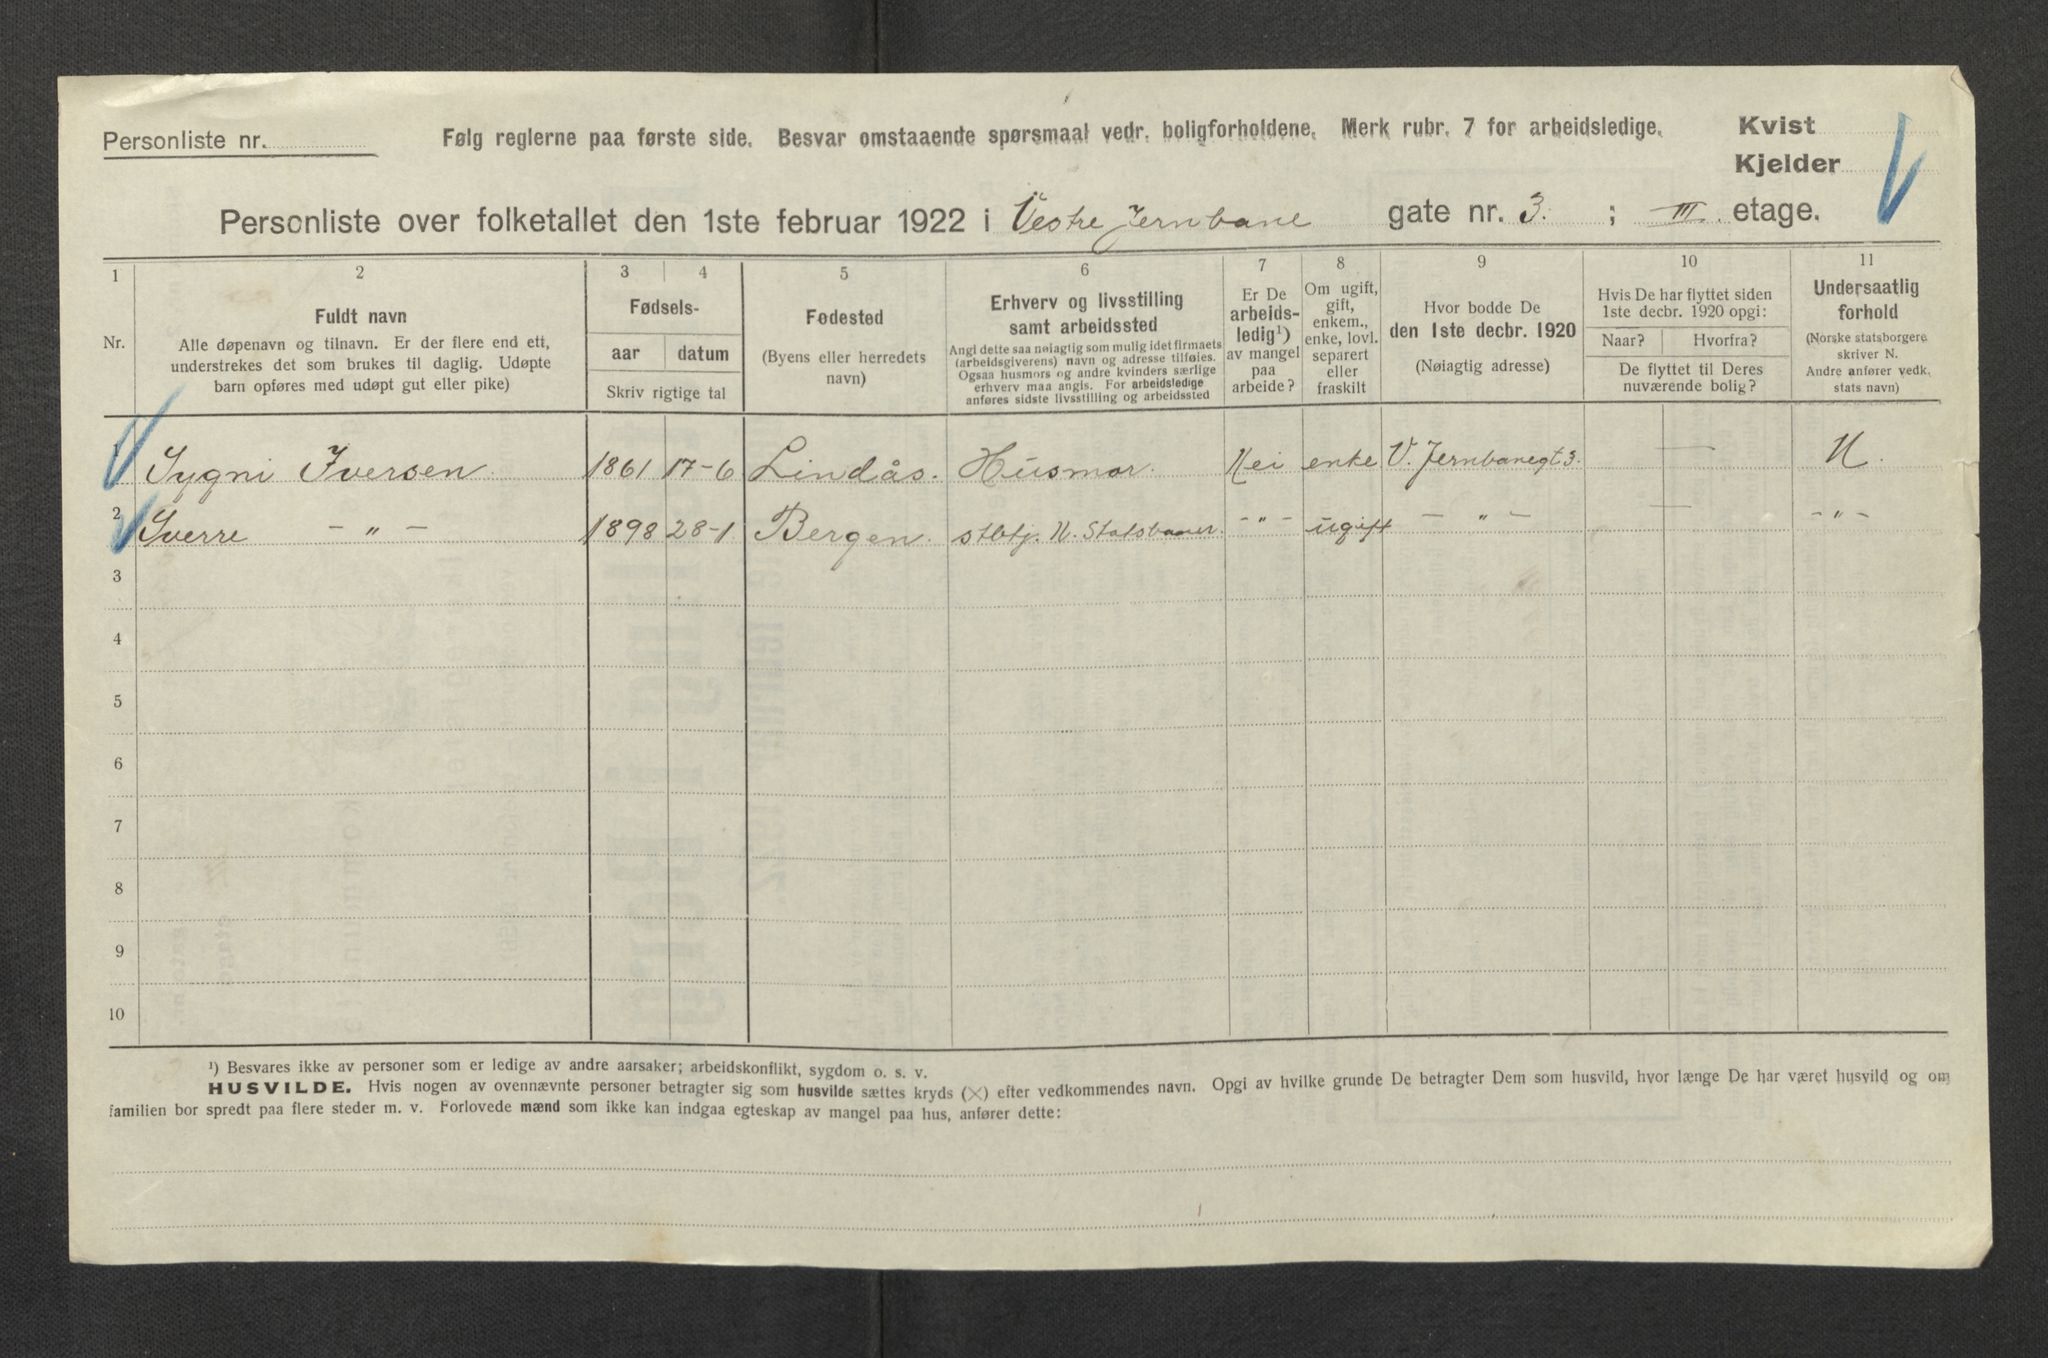 Personliste nr.
Følg reglerne paa første side. Besvar omstaaende spørsmaal vedr. boligforholdene. Merk rubr. 7 for arbeidsledige.
Kvist
Kjelder
Personliste over folketallet den 1ste februar 1922 i Vestre Jernbane gate nr. 3. ; III. etage.
1 2 3 4 5 6 7 8 9 10 11
Nr.
Fuldt navn
Alle døpenavn og tilnavn. Er der flere end ett,
understrekes det som brukes til daglig. Udøpte
barn opføres med udøpt gut eller pike)
Fødsels-
aar datum
Skriv rigtige tal
Fødested
(Byens eller herredets
navn)
Erhverv og livsstilling
samt arbeidssted
Angi dette saa nøiagtig som mulig idet firmaets
(arbeidsgiverens) navn og adresse tilføies.
Ogsaa husmors og andre kvinders særlige
erhverv maa angis. For arbeidsledige
anføres sidste livsstilling og arbeidssted
Er De
arbeids-
ledig¹)
av mangel
paa
arbeide?
Om ugift,
gift,
enkem.,
enke, lovl.
separert
eller
fraskilt
Hvor bodde De
den 1ste decbr. 1920
(Nøiagtig adresse)
Hvis De har flyttet siden
1ste decbr. 1920 opgi:
Naar? Hvorfra?
De flyttet til Deres
nuværende bolig?
Undersaatlig
forhold
(Norske statsborgere
skriver N.
Andre anfører vedk.
stats navn)
1 Sygni Iversen 1861 17-6 Lindås. Husmor. Nei enke V. Jernbanegt 3. — N.
2 Sverre — „ — 1898 28-1 Bergen. stbtj. N. Statsbaner. -„- ugift — „ — — -„-
3
4
5
6
7
8
9
10
¹) Besvares ikke av personer som er ledige av andre aarsaker; arbeidskonflikt, sygdom o. s. v.
HUSVILDE. Hvis nogen av ovennævnte personer betragter sig som husvilde sættes kryds (×) efter vedkommendes navn. Opgi av hvilke grunde De betragter Dem som husvild, hvor længe De har været husvild og om
familien bor spredt paa flere steder m. v. Forlovede mænd som ikke kan indgaa egteskap av mangel paa hus, anfører dette: